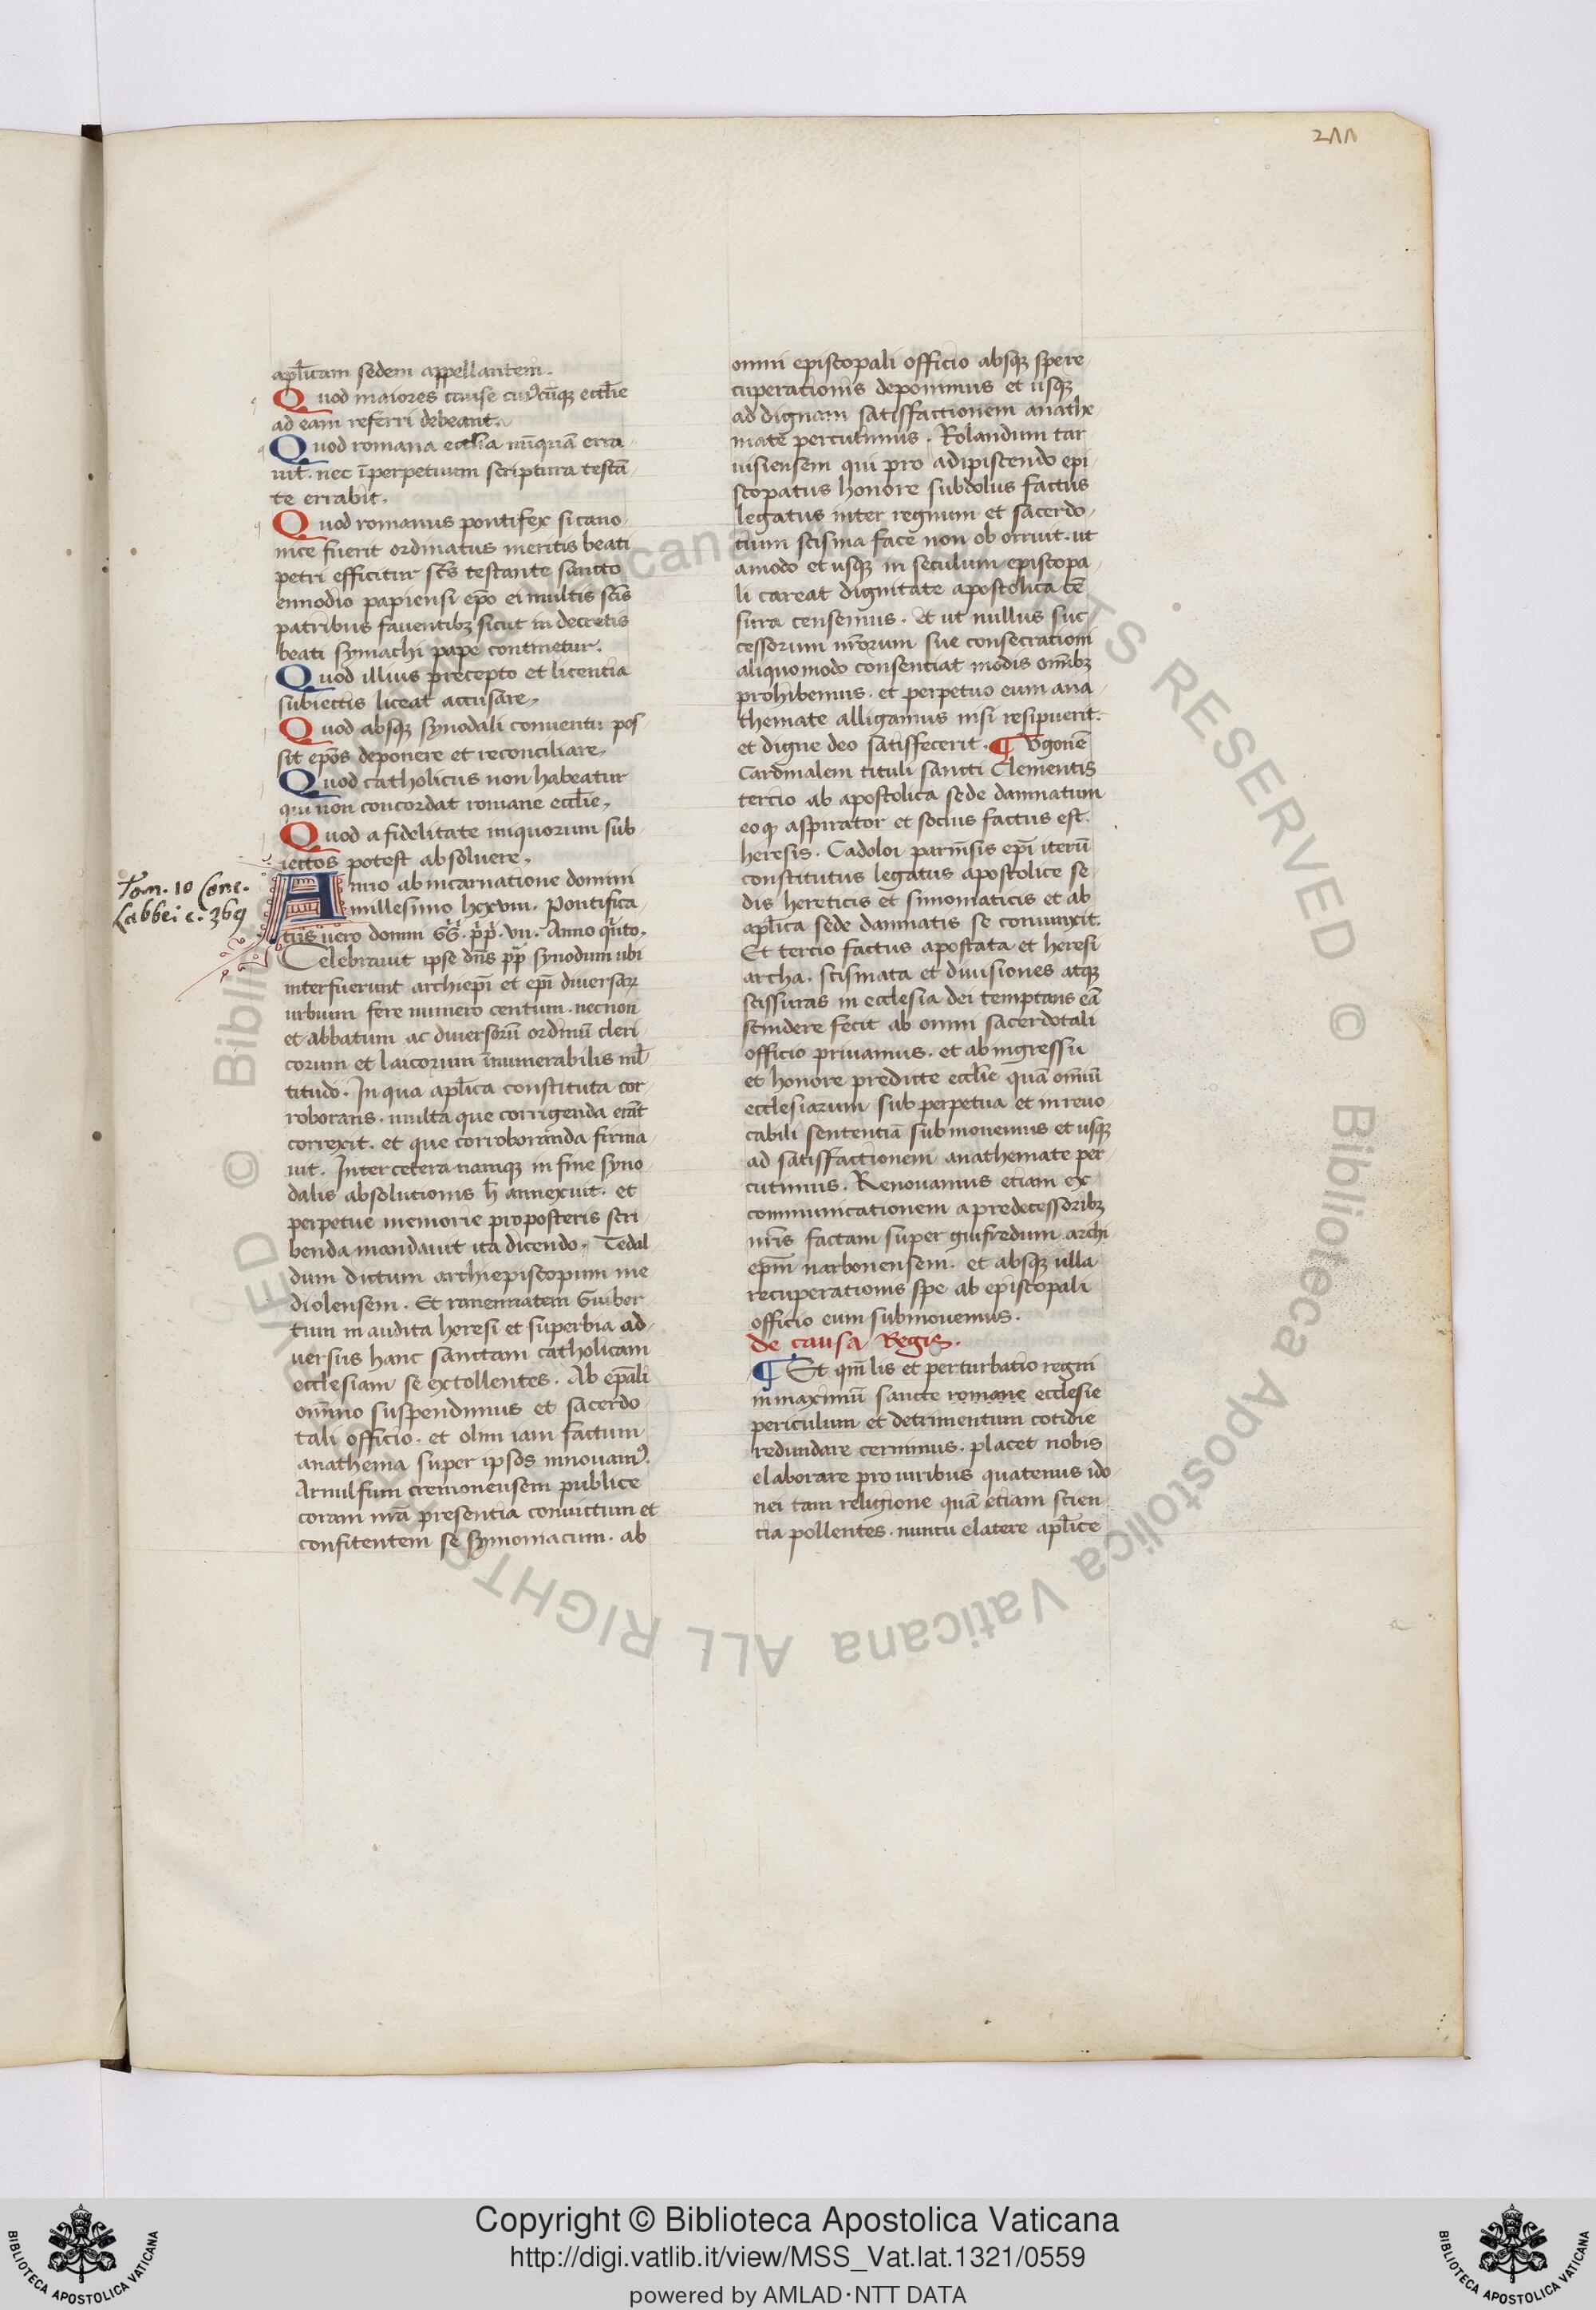 211
apl̄icam sedem appellantem.
Quod maiores cause cuiꝰcūqꝫ eccl̄ie
ad eam referri debeant.
Quod romana eccl̄ia nūquā erra
uit. nec īperpetuum scriptura testā
te errabit.
Quod romanus pontifex si cano
nice fuerit ordinatus meritis beati
petri efficitur sc̄s testante sancto
ennodio papiensi ep̄o ei multis sc̄is
patribus fauentibꝫ sicut in decretis
beati symachi pape continetur.
Quod illius precepto et licentia
subiectis liceat accusare,
Quod absqꝫ synodali conuentu pos
sit ep̄os deponere et reconciliare,
Quod catholicus non habeatur
qui non concordat romane eccl̄ie,
Quod a fidelitate iniquorum sub
iectos potest absoluere,
Tom. 10 Conc.
Labbei c. 369
Anno ab incarnatione domini
millesimo lxxviii. Pontifica
tus uero domni GG. pp. vii. Anno qͥnto.
Celebrauit ipse dn̄s pp synodum ubi
interfuerunt archiep̄i et ep̄i diuersaꝝ
urbium fere numero centum. necnon
et abbatum ac diuersorū ordinū cleri
corum et laicorum īnumerabilis ml̄
titudo. In qua apl̄ica constituta cor
roborans. multa que corrigenda erāt
correxit. et que corroboranda firma
uit. Inter cetera namqꝫ in fine syno
dalis absolutionis h̄ annexuit. et
perpetue memorie pro posteris scri
benda mandauit ita dicendo. Tedal
dum dictum archiepiscopum me
diolensem. Et rauennatem Guiber
tum in audita heresi et superbia ad
uersus hanc sanctam catholicam
ecclesiam se extollentes. Ab ep̄ali
om̄ino suspendimus et sacerdo
tali officio. et olim iam factum
anathema super ipsos innouamꝰ.
Arnulfum cremonensem publice
coram nr̄a presentia conuictum et
confitentem se symoniacum. ab
omni episcopali officio absqꝫ spere
cuperationis deponimus et usqꝫ
ad dignam satisfactionem anathe
mate percutimus. Rolandum tar
uisiensem qui pro adipiscendo epi
scopatus honore subdolus factus
legatus inter regnum et sacerdo
tium scisma face non ob orruit. ut
amodo et usqꝫ in seculum episcopa
li careat dignitate apostolica cē
sura censemus. et ut nullus suc
cessorum nr̄orum sue consecrationi
aliquomodo consentiat modis omībꝫ
prohibemus. et perpetuo eum ana
themate alligamus nisi resipuerit.
et digne deo satisfecerit. ¶ Vgonē
Cardinalem tituli sancti Clementis
tercio ab apostolica sede damnatum
eoqꝫ aspirator et socius factus est.
heresis. Cadoloi parmēsis ep̄i iterū
constitutus legatus apostolice se
dis hereticis et simoniaticis et ab
apl̄ica sede damnatis se coniunxit.
Et tercio factus apostata et heresi
archa. scismata et diuisiones atqꝫ
scissuras in ecclesia dei temptans eā
scindere fecit ab omni sacerdotali
officio priuamus. et ab ingressu
et honore predicte eccl̄ie quā om̄iū
ecclesiarum sub perpetua et inreuo
cabili sententiā submouemus et usqꝫ
ad satisfactionem anathemate per
cutimus. Renouamus etiam ex
communicationem a predecessoribꝫ
nr̄is factam super guifredum archi
ep̄m narbonensem. et absqꝫ ulla
recuperationis spe ab episcopali
officio eum submouemus.
de causa Regis.
¶ Et qm̄ lis et perturbatio regni
in maximū sancte romane ecclesie
periculum et detrimentum cotidie
redundare cernimus. placet nobis
elaborare pro uiribus quatenus ido
nei tam religione quā etiam scien
tia pollentes. nuncii elatere apl̄ice
© Biblioteca Apostolica Vaticana ALL RIGHTS RESERVED
Copyright © Biblioteca Apostolica Vaticana
http://digi.vatlib.it/view/MSS_Vat.lat.1321/0559
powered by AMLAD·NTT DATA
BIBLIOTECA APOSTOLICA VATICANA
BIBLIOTECA APOSTOLICA VATICANA